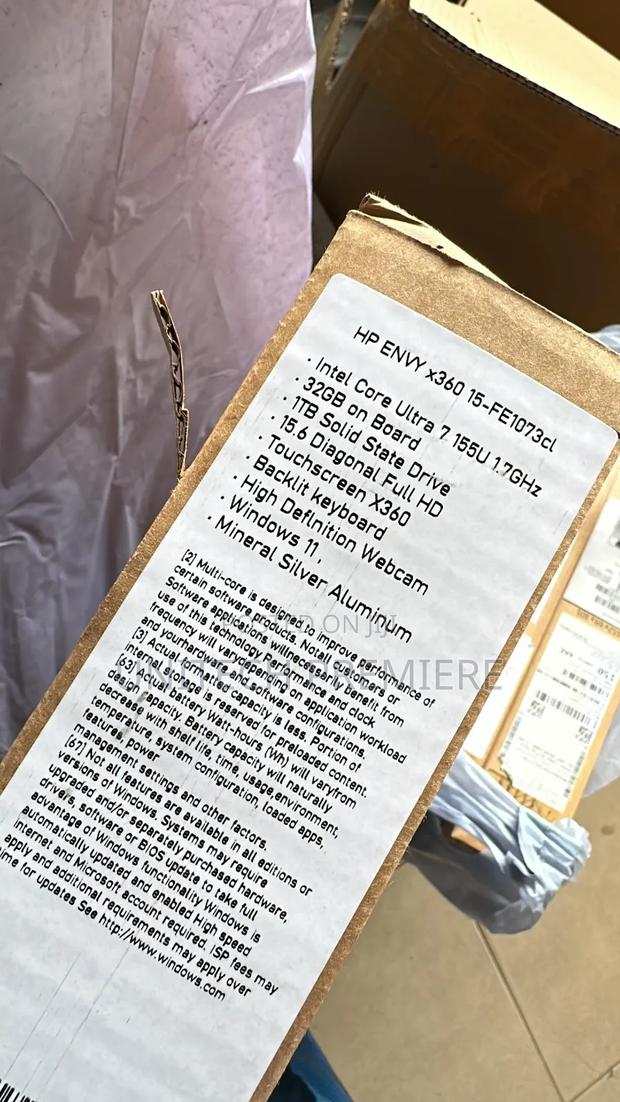 HP ENVY x360 15-FE1073cl
· Intel Core Ultra 7 155U 1.7GHz
· 32GB on Board
· 1TB Solid State Drive
· 15.6 Diagonal Full HD
· Touchscreen X360
· Backlit keyboard
· High Definition Webcam
· Windows 11,
· Mineral Silver Aluminum
[2] Multi-core is designed to improve performance of
certain software products. Notall customers or
Software applications willnecessarily benefit from
use of this technology Performance and clock
frequency will varydepending on application workload
and yourhardware and software configurations.
[3] Actual formatted capacity is less. Portion of
internal storage is reserved for preloaded content.
[63] Actual battery Watt-hours (Wh) will varyfrom
design capacity. Battery capacity will naturally
decrease with shelf life, time, usage,environment,
temperature, system configuration, loaded apps,
features, power
management settings and other factors.
[67] Not all features are available in all editions or
versions of Windows. Systems may require
upgraded and/or separately purchased hardware,
drivers, software or BIOS update to take full
advantage of Windows functionality Windows is
automatically updated and enabled High speed
internet and Microsoft account required. ISP fees may
apply and additional requirements may apply over
time for updates See http://www.windows.com
POSTED ON Jiji
UNITECH PREMIERE